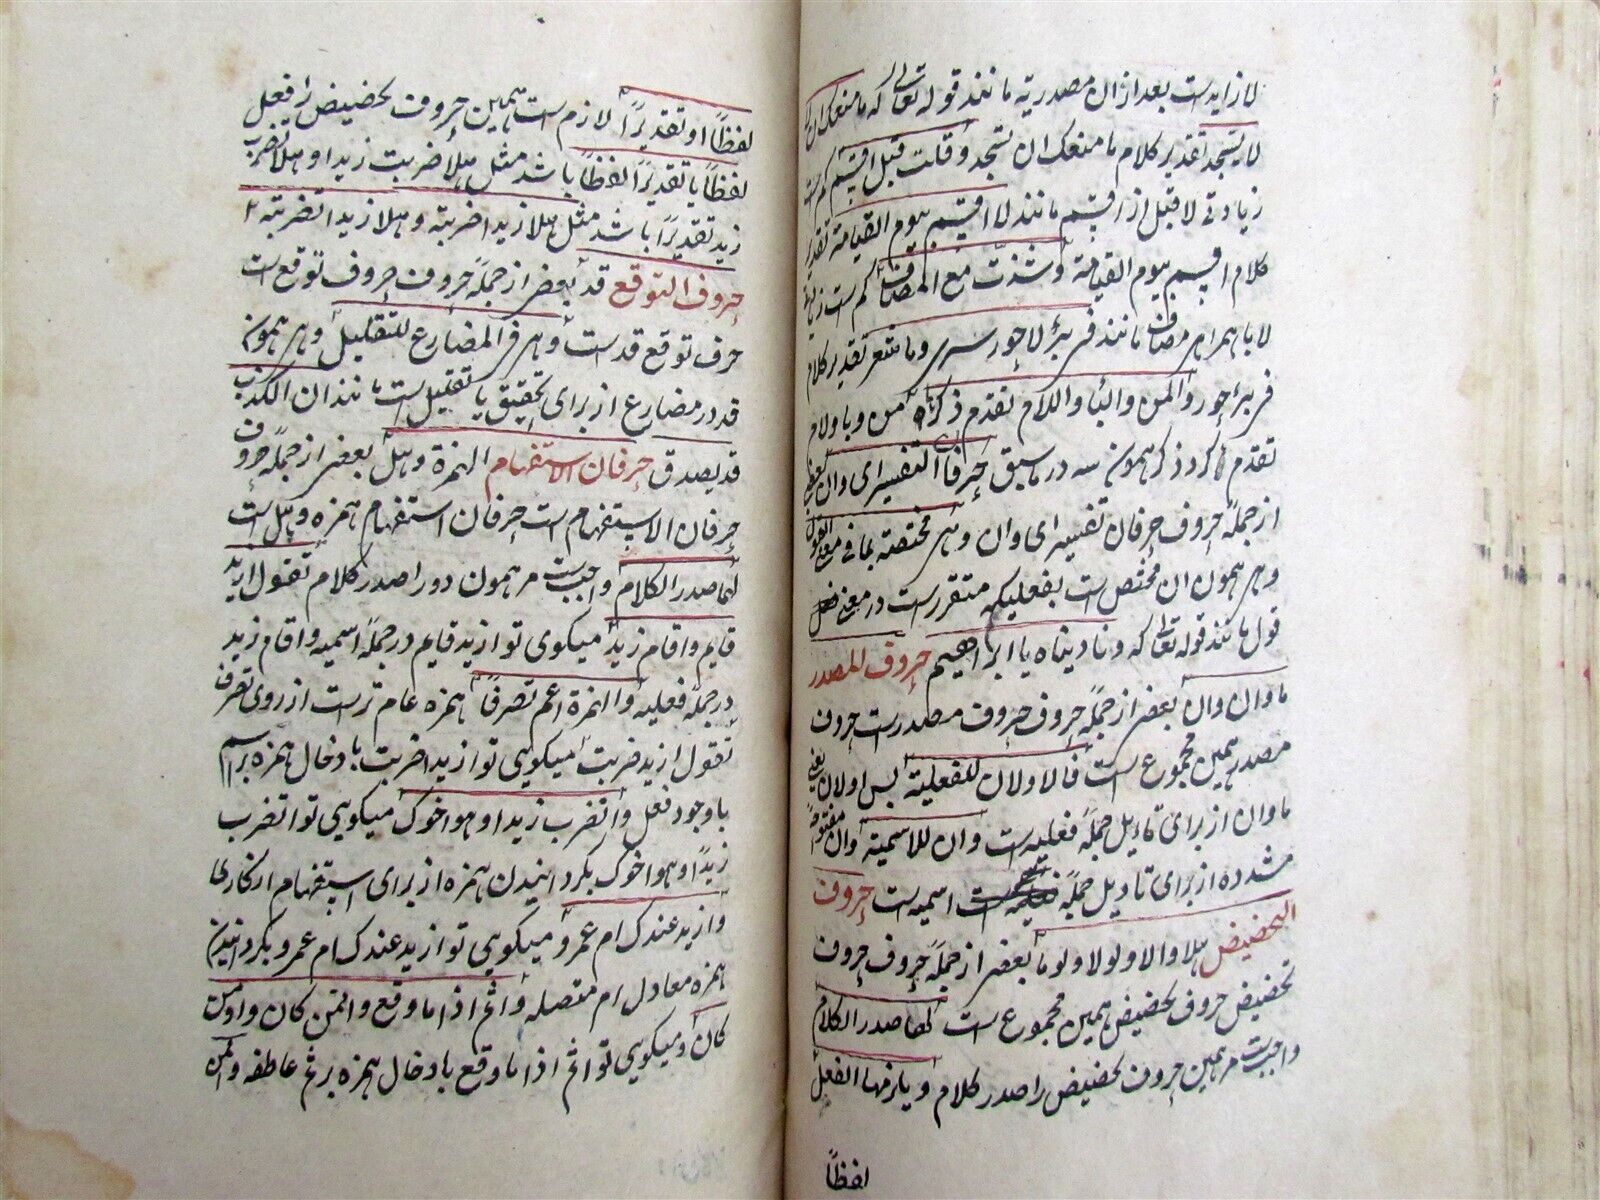 لا زایدست بعد از ان مصدریه مانند قوله تعالی که ما منعک ان
لا یسجد تقدیر کلام ما منعک ان تسجد وقلت قبل اقسم کم است
زیادتی لا قبل از اقسم مانند لا اقسم بیوم القیامة تقدیر
کلام اقسم بیوم القیامة وشذت مع المضاف کم است زیادتی
لا با همراه مضاف مانند فی بئر لا حور سری وما شعر تقدیر کلام
فی بئر حور والمن والبا واللام تقدم ذکرها من وبا ولام
تقدم کرد ذکر همون سه در ما سبق حرفا التفسیر ای وان بعضی
از جملهٔ حروف حرفان تفسیر ای وان وهی مختصة بما فی معنی القول
وهی همون ان مختص است بفعلیکه متقررست در معنی
قول مانند قوله تعالی که ونادیناه یا ابراهیم حروف المصدر
ما وان وان بعضی از جملهٔ حروف حروف مصدرست حروف
مصدر همین مجموع است فالاولان للفعلیة پس اولان یعنی
ما وان از برای تاویل جملهٔ فعلیه است وان للاسمیة وان مفتوحهٔ
مشدده از برای تاویل جملهٔ اسمیه است حروف
التحضیض هلا والا ولولا ولوما بعضی از جملهٔ حروف حروف
تحضیض حروف تحضیض همین مجموع است لها صدر الکلام
واجبست مر همین حروف تحضیض را صدر کلام ویلزمها الفعل
لفظاً
لفظاً او تقدیراً لازم است همین حروف تحضیض را فعل
لفظاً یا تقدیراً لفظاً باشد مثل هلا ضربت زیدا وهلا تضرب
زید تقدیراً باشد مثل هلا زیدا ضربته وهلا زیدا تضربه
حروف التوقع قد بعضی از جملهٔ حروف حروف توقع است
حرف توقع قد است وهی فی المضارع للتقلیل وهی همون
قد در مضارع از برای تحقیق یا تقلیل است مانند ان الکذوب
قد یصدق حرفان الاستفهام الهمزة وهل بعضی از جملهٔ حروف
حرفان الاستفهام است حرفان استفهام همزه وهل است
لهما صدر الکلام واجبست مر همون دو را صدر کلام تقول ازید
قایم واقام زید میکوی تو ازید قایم در جملهٔ اسمیه واقام زید
در جملهٔ فعلیه والهمزة اعم تصرفاً همزه عام ترست از روی تصرف
تقول ازیدا ضربت میکویی تو ازیدا ضربت بادخال همزه براسم
باوجود فعل واتضرب زیدا وهو اخوک میکویی تو اتضرب
زیدًا وهو اخوک بکردانیدن همزه از برای استفهام انکاری
وازید عندک ام عمرو میکویی تو ازید عندک ام عمرو بکردانیدن
همزه معادل ام متصله واثم اذا ما وقع وافمن کان واومن
کان ومیکویی تو اثم اذا ما وقع بادخال همزه برثم عاطفه وافمن